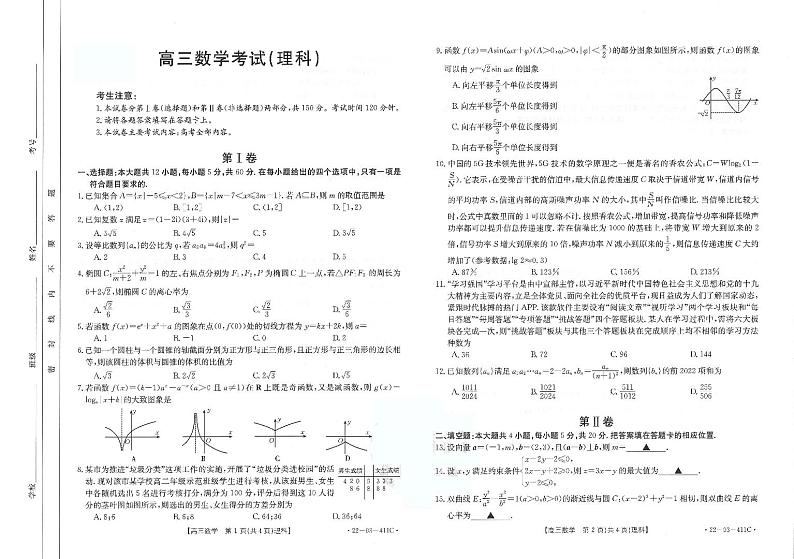 高三数学考试(理科)
考生注意:
1.本试卷分第Ⅰ卷(选择题)和第Ⅱ卷(非选择题)两部分,共150分。考试时间120分钟。
2.请将各题答案填写在答题卡上。
3.本试卷主要考试内容:高考全部内容。
第Ⅰ卷
一、选择题:本大题共12小题,每小题5分,共60分.在每小题给出的四个选项中,只有一项是
符合题目要求的.
1.已知集合A={x|-5≤x<2},B={x|m-7<x≤3m-1}.若A⊆B,则m的取值范围是
A.(1,2) B.[1,2] C.(1,2] D.[1,2)
2.已知复数z满足z=(1-2i)(3+4i),则|z|=
A.3√5 B.4√5 C.5√5 D.5√3
3.设等比数列{aₙ}的公比为q,若
A.2 B.3 C.4 D.5
4.椭圆C:x²/(m+2)+y²/m=1的左、右焦点分别为F₁,F₂,P为椭圆C上一点,若△PF₁F₂的周长为
6+2√2,则椭圆C的离心率为
5.若函数f(x)=eˣ+x²+a的图象在点(0,f(0))处的切线方程为y=kx+2k,则a=
A.1 B.-1 C.0 D.2
6.已知一个圆柱与一个圆锥的轴截面分别为正方形与正三角形,且正方形与正三角形的边长相
等,则该圆柱的体积与圆锥的体积的比值为
7.若函数f(x)=(k-1)aˣ-a⁻ˣ(a>0且a≠1)在R上既是奇函数,又是减函数,则g(x)=
logₐ|x+k|的大致图象是
A B C D
8.某市为推进“垃圾分类”这项工作的实施,开展了“垃圾分类进校园”的活
动.现对该市某学校高二年级示范班级学生进行考核,从该班男生、女生
中各随机选出5名进行考核打分,满分为100分,评分后得到这10人得
分的茎叶图如图所示,则选出的男生、女生得分的方差分别为
男生成绩 女生成绩
A.8;6 B.6;8 C.64;36 D.36;64
【高三数学 第1页(共4页)理科】
·22-03-411C·
9.函数f(x)=Asin(ωx+φ)(A>0,ω>0,|φ|<π/2)的部分图象如图所示,则函数f(x)的图象
可以由y=√2sin ωx的图象
A.向左平移π/3个单位长度得到
B.向左平移5π/6个单位长度得到
C.向右平移5π/6个单位长度得到
D.向右平移π/3个单位长度得到
10.中国的5G技术领先世界,5G技术的数学原理之一便是著名的香农公式:C=Wlog₂(1+
S/N).它表示,在受噪音干扰的信道中,最大信息传递速度C取决于信道带宽W,信道内信号
的平均功率S,信道内部的高斯噪声功率N的大小,其中S/N叫作信噪比.当信噪比比较大
时,公式中真数里面的1可以忽略不计.按照香农公式,增加带宽,提高信号功率和降低噪声
功率都可以提升信息传递速度.若在信噪比为1000的基础上,将带宽W增大到原来的2
倍,信号功率S增大到原来的10倍,噪声功率N减小到原来的1/5,则信息传递速度C大约
增加了(参考数据:lg 2≈0.3)
A.87% B.123% C.156% D.213%
11.“学习强国”学习平台是由中宣部主管,以习近平新时代中国特色社会主义思想和党的十九
大精神为主要内容,立足全体党员、面向全社会的优质平台,现日益成为人们了解国家动态,
紧跟时代脉搏的热门APP.该款软件主要设有“阅读文章”“视听学习”两个学习板块和“每
日答题”“每周答题”“专项答题”“挑战答题”四个答题板块.某人在学习过程中,需将六大板
块各完成一次,则“挑战答题”板块与其他三个答题板块在完成顺序上均不相邻的学习方法
种数为
A.36 B.72 C.96 D.144
12.已知数列{aₙ}满足a₁a₂…aₙ=2-2aₙ,bₙ=aₙ/(n+1)²,则数列{bₙ}的前2022项和为
A.1011/2024 B.1021/2024 C.511/1012 D.255/506
第Ⅱ卷
二、填空题:本大题共4小题,每小题5分,共20分.把答案填在答题卡的相应位置.
13.设向量a=(-1,m),b=(2,3),且(a-b)⊥b,则m=▲.
14.设x,y满足约束条件{x-2y-2≤0, 2x-y+2≥0, x-2≤0,则z=3x-y的最大值为▲.
15.以曲线E:y²/a²-x²/b²=1(a>b>0)的渐近线与圆C:(x-2)²+y²=1相切,则双曲线E的离
心率为▲.
【高三数学 第2页(共4页)理科】
·22-03-411C·
学校
班级
姓名
考号
密 封 线 内 不 要 答 题